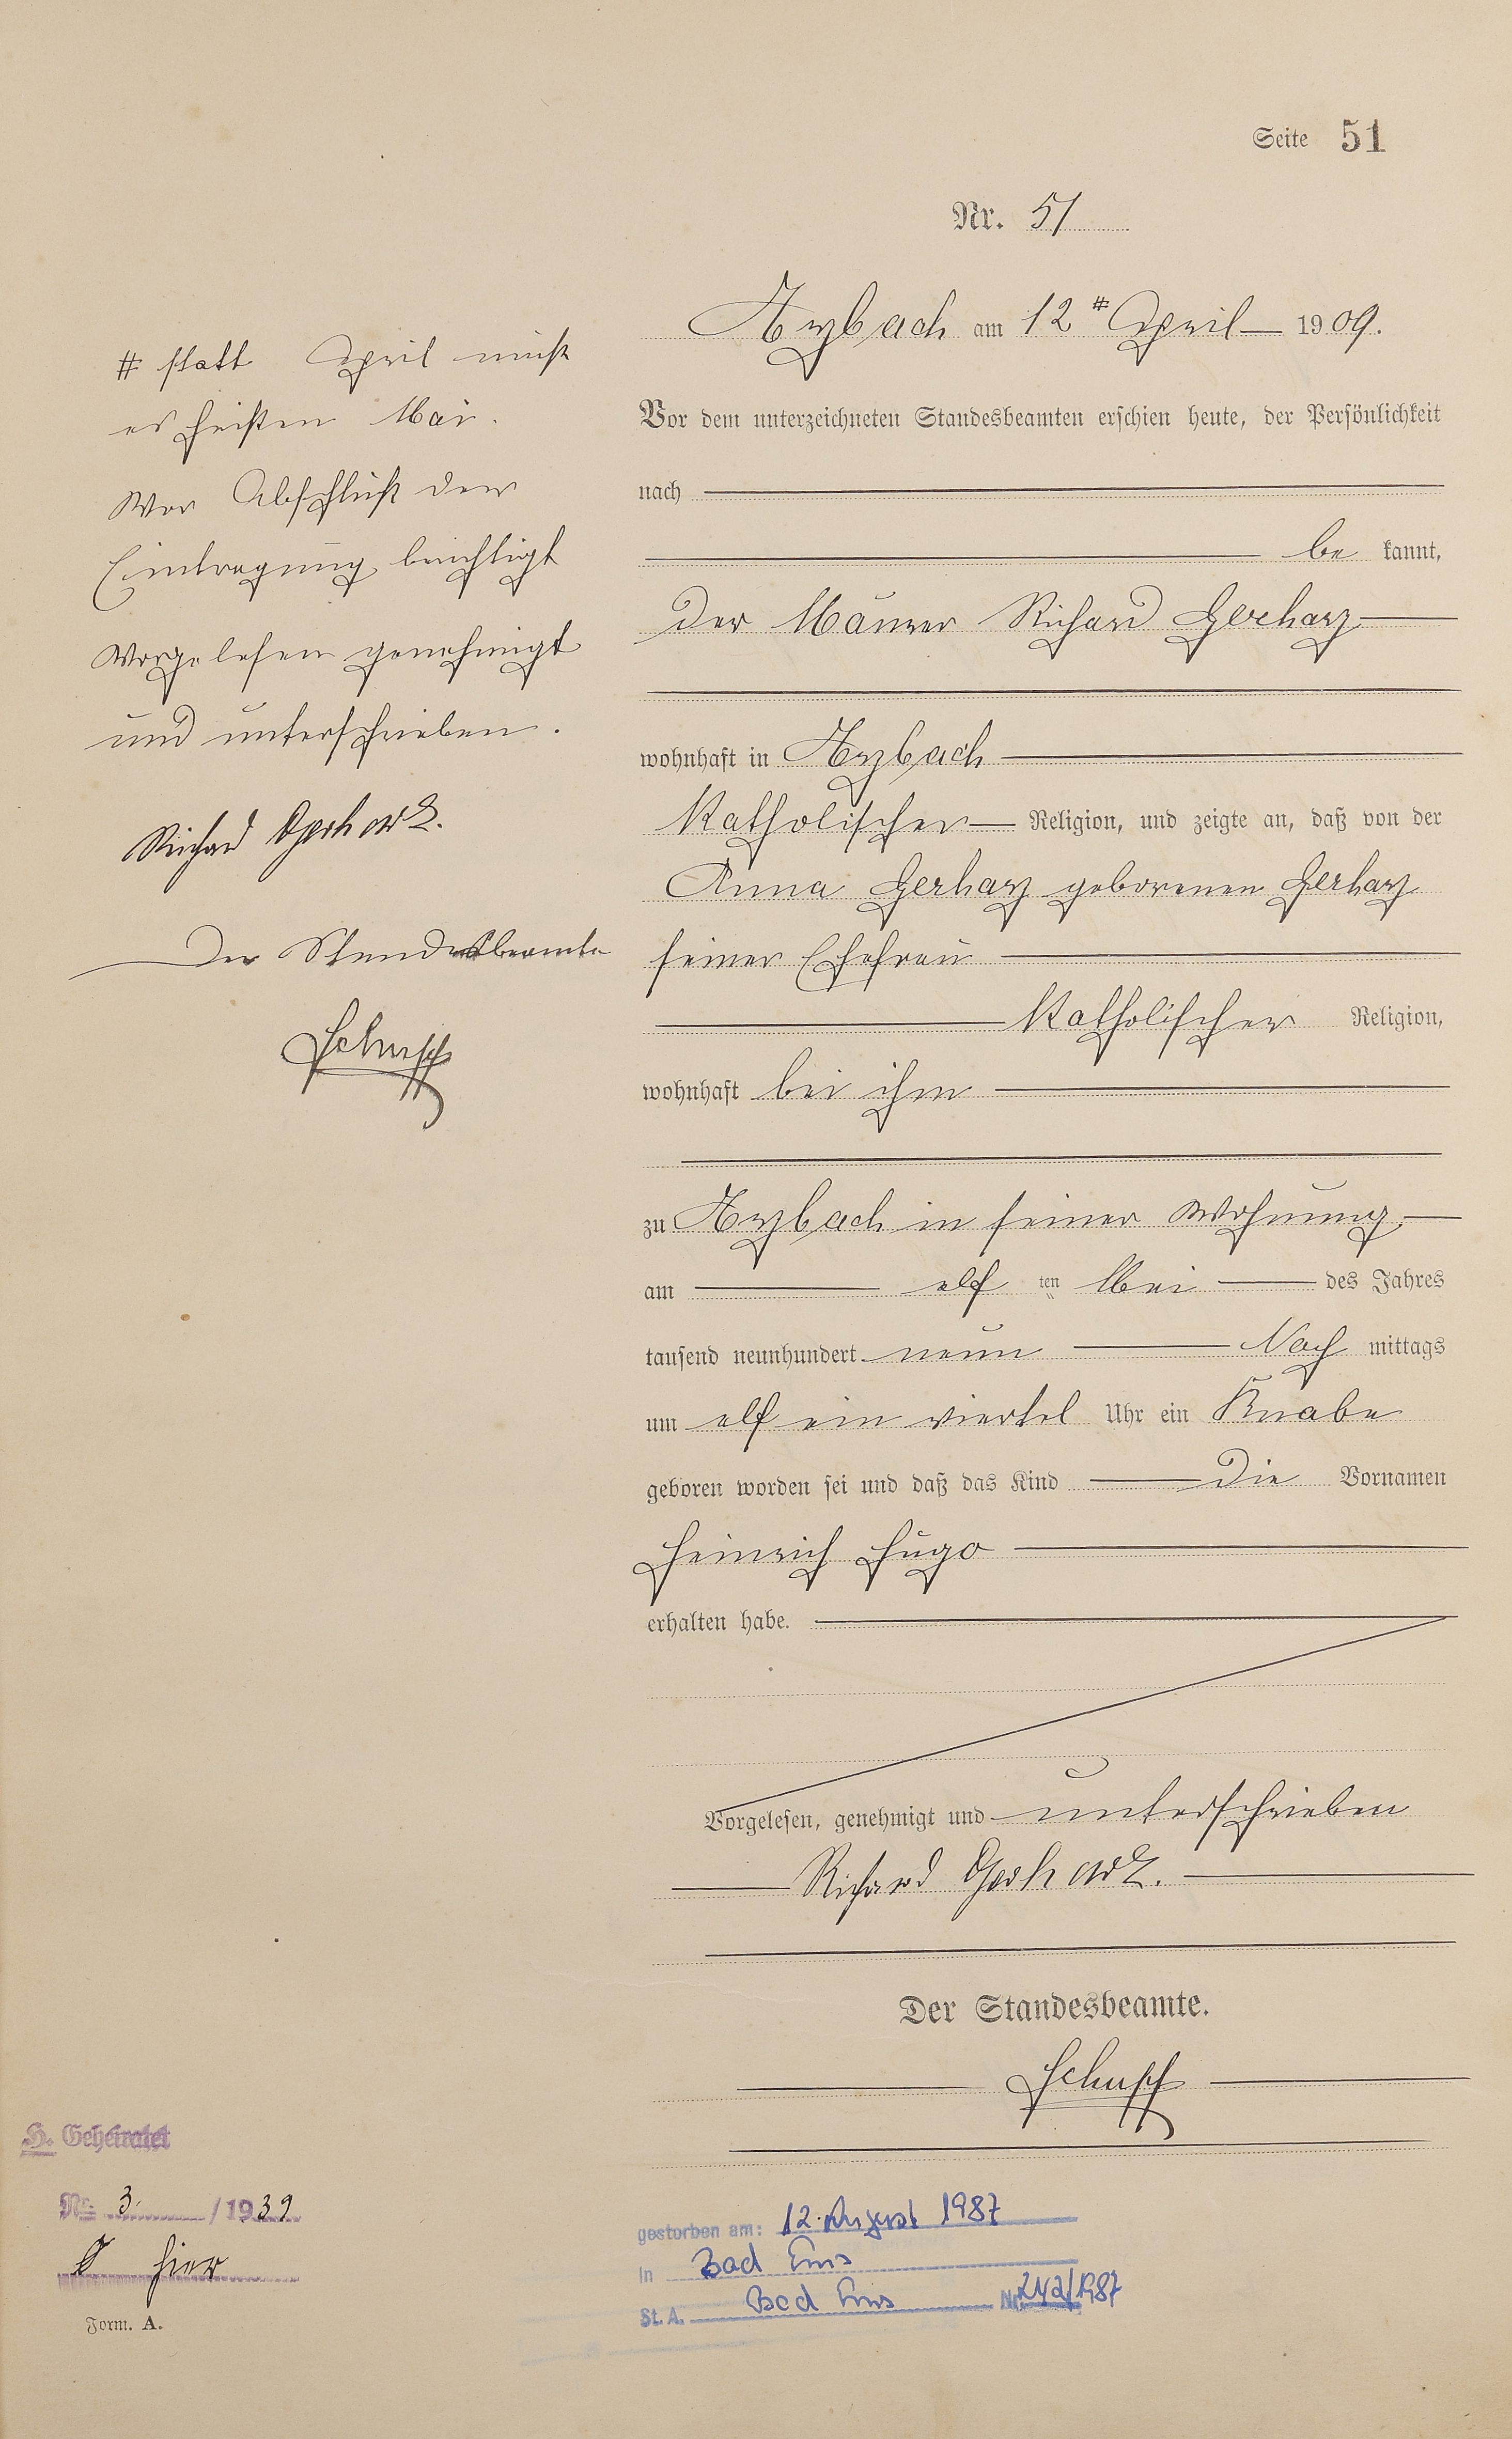 Seite 51
Nr. 51
Arzbach am 12 # April 1909.
Vor dem unterzeichneten Standesbeamten erschien heute, der Persönlichkeit
nach
be kannt,
der Maurer Richard Gerharz
wohnhaft in Arzbach
katholischer Religion, und zeigte an, daß von der
Anna Gerharz geborenen Gerharz
seiner Ehefrau
katholischer Religion,
wohnhaft bei ihm
zu Arzbach in seiner Wohnung
am elf ten Mai des Jahres
tausend neunhundert neun Nach mittags
um elf ein viertel Uhr ein Knabe
geboren worden sei und daß das Kind die Vornamen
Heinrich Hugo
erhalten habe.
Vorgelesen, genehmigt und unterschrieben
Richard Gerharz.
Der Standesbeamte.
Schupp
# statt April muß
es heißen Mai.
Vor Abschluß der
Eintragung berichtigt
Vorgelesen genehmigt
und unterschrieben.
Richard Gerharz.
Der Standesbeamte
Schupp
H. Geheiratet
No. 3 / 1939
hier
Form. A.
gestorben am: 12. August 1987
in Bad Ems
St. A. Bad Ems Nr. 242/1987